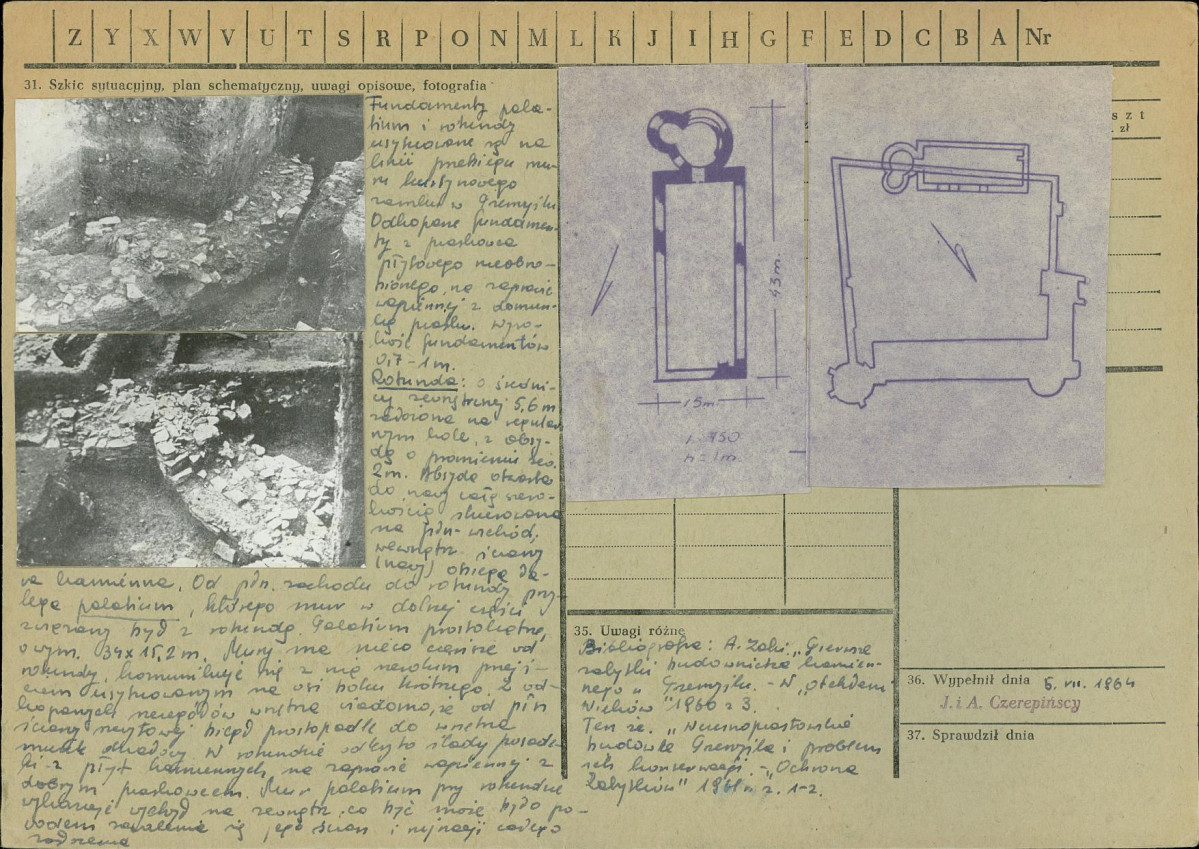 Z Y X W V U T S R P O N M L K J I H G F E D C B A Nr
31. Szkic sytuacyjny, plan schematyczny, uwagi opisowe, fotografia
Fundamenty pala-
tium i rotundy
usytuowane są na
linii przebiegu mu-
ru kurtynowego
zamku w Przemyślu
Odkopane fundamen-
ty z piaskowca
płytowego nieobro-
bionego, na zaprawie
wapiennej z domiesz-
ką piasku. Wyso-
kość fundamentów
0,7 - 1 m.
Rotunda: o średni-
cy zewnętrznej 5,6 m
założona na regular
nym kole, z absy-
dą o promieniu
2 m. Absyda otwarta
do nawy całą szero-
kością skierowana
na płn-wschód.
wewnątrz ściany
(nawy) obiega ła-
wa kamienna. Od płn. zachodu do rotundy przy-
lega palatium, którego mur w dolnej części
związany był z rotundą. Palatium prostokątne,
o wym. 34 x 15,2 m. Mury ma nieco cieńsze od
rotundy, komunikuje się z nią wąskim przejś-
ciem usytuowanym na osi boku krótszego. Z od-
kopanych szczegółów wnętrza wiadomo, że od płn
ściany szczytowej biegł prostopadle do wnętrza
murek działowy. W rotundzie odkryto ślady posadz
ki z płyt kamiennych na zaprawie wapiennej z
dobrym piaskowcem. Mur palatium przy rotundzie
wykazuje wychył na zewnątrz, co być może było po-
wodem zawalenia się jego ścian i ruinacji całego
założenia
43 m.
15 m.
1:750
h = 1 m.
s z t
zł
35. Uwagi różne
Bibliografia: A. Żaki. "Pierwsze
zabytki budownictwa kamien-
nego w Przemyślu. - W "Z otchłani
Wieków" 1960 z 3.
Tenże. "Wczesnopiastowskie
budowle Przemyśla i problem
ich konserwacji. - "Ochrona
Zabytków" 1961 r. z. 1-2.
36. Wypełnił dnia 5. VII. 1964
J. i A. Czerepińscy
37. Sprawdził dnia